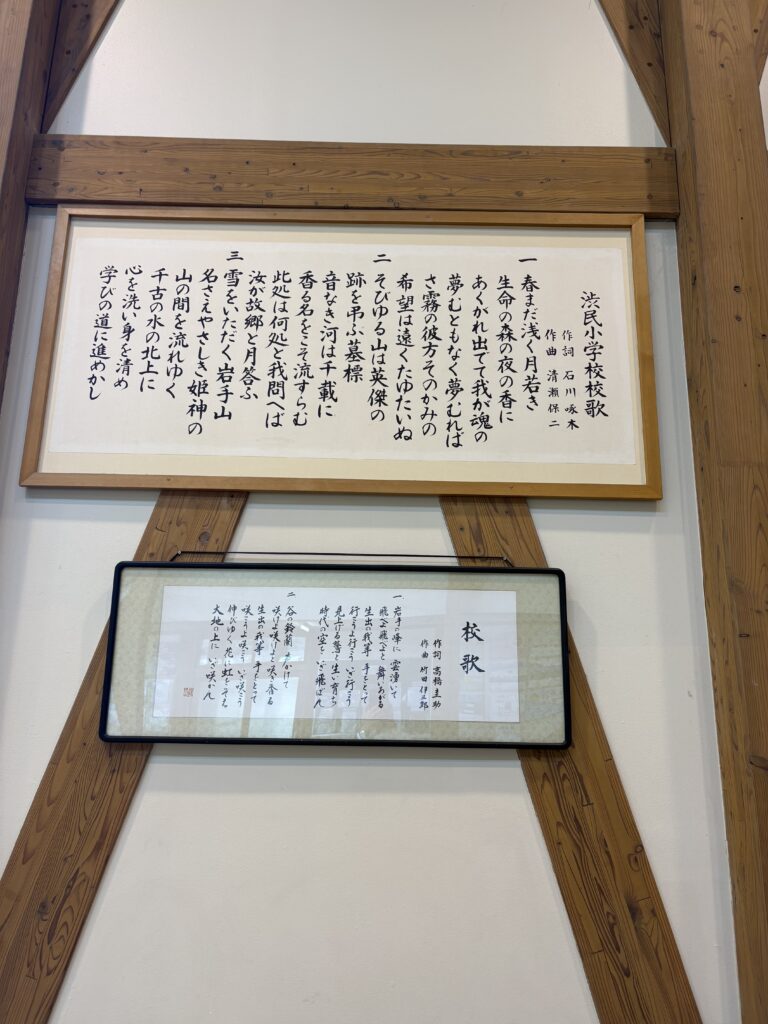 渋民小学校校歌
作詞 石川啄木
作曲 清瀬保二
一 春まだ浅く月若き
生命の森の夜の香に
あくがれ出でて我が魂の
夢むともなく夢むれば
さ霧の彼方そのかみの
希望は遠くたゆたいぬ
二 そびゆる山は英傑の
跡を弔ふ墓標
音なき河は千載に
香る名をこそ流すらむ
此処は何処と我問へば
汝が故郷と月答ふ
三 雪をいただく岩手山
名さえやさしき姫神の
山の間を流れゆく
千古の水の北上に
心を洗い身を清め
学びの道に進めかし
校歌
作詞 高橋圭助
作曲 竹田伊三郎
一 岩手の峰に 雲湧いて
飛べよ飛べよと 舞いあがる
生出の我等 手をとって
行こうよ行こう いざ行こう
見上げる鷲と 生い育ち
時代の空を いざ飛ばん
二 谷の鈴蘭 かけて
咲けよ咲けよと 咲き香る
生出の我等 手をとって
咲こうよ咲こう いざ咲こう
伸びゆく花に 虹を
大地の上に いざ咲かん